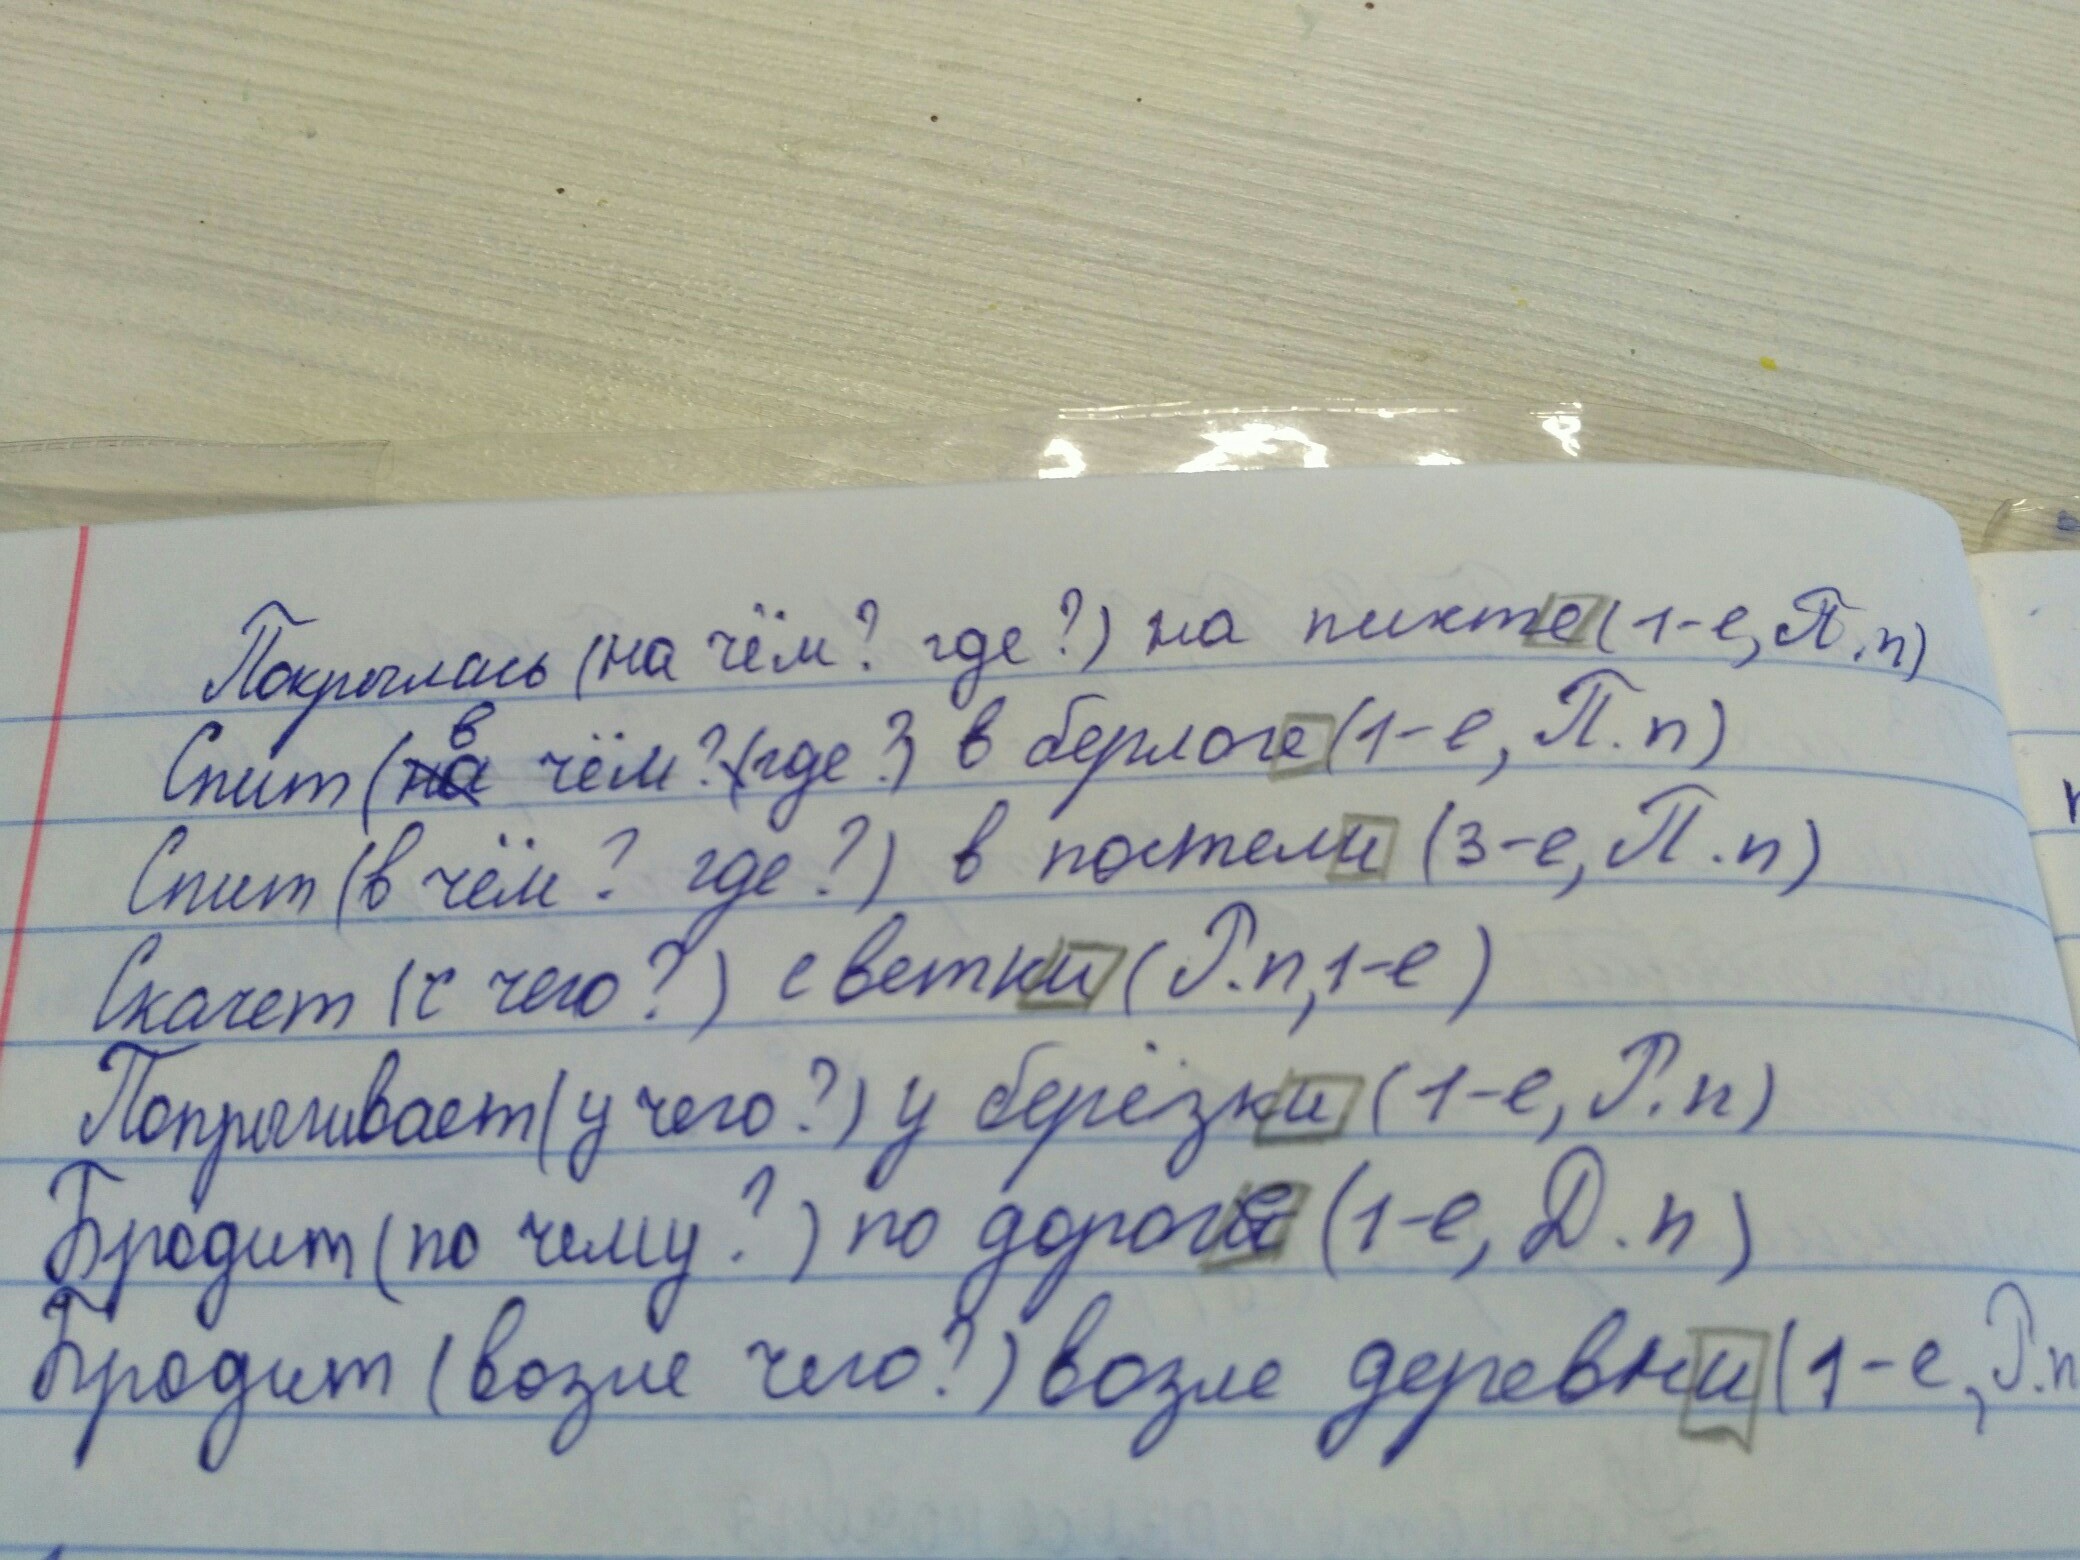 Покрылась (на чём? где?) на пихте (1-е, П.п)
Спит (в чём? где?) в берлоге (1-е, П.п)
Спит (в чём? где?) в постели (3-е, П.п)
Скачет (с чего?) с ветки (Р.п, 1-е)
Попрыгивает (у чего?) у берёзки (1-е, Р.п)
Бродит (по чему?) по дороге (1-е, Д.п)
Бродит (возле чего?) возле деревни (1-е, Р.п